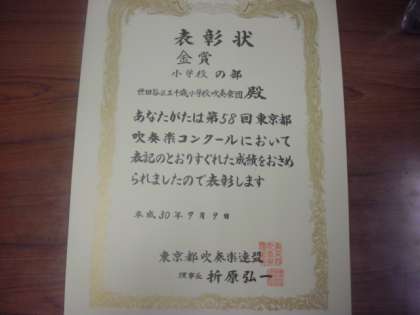 表彰状
金賞
小学校の部
世田谷区立千歳小学校吹奏楽団殿
あなたがたは第58回東京都
吹奏楽コンクールにおいて
表記のとおりすぐれた成績をおさめ
られましたので表彰します
平成30年9月9日
東京都吹奏楽連盟
理事長 折原弘一